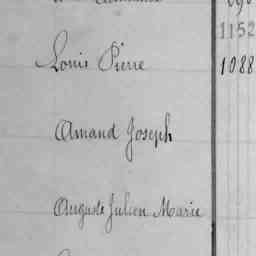 1152
Louis Pierre 1088
Amand Joseph
Auguste Julien Marie